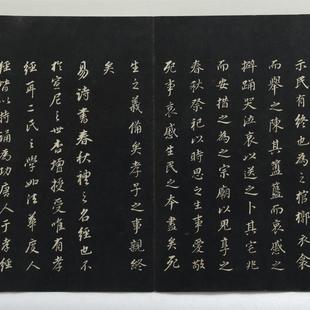 示民有終也為之棺槨衣衾
而舉之陳其簠簋而哀感之
擗踊哭泣哀以送之卜其宅兆
而安措之為之宗廟以鬼享之
春秋祭祀以時思之生事愛敬
死事哀感生民之本盡矣死
生之義備矣孝子之事親終
矣
易詩書春秋禮之名經也不
於宣尼之世杏壇授受唯有孝
經耳二氏之學如法華度人
經皆以持誦為功人于孝經